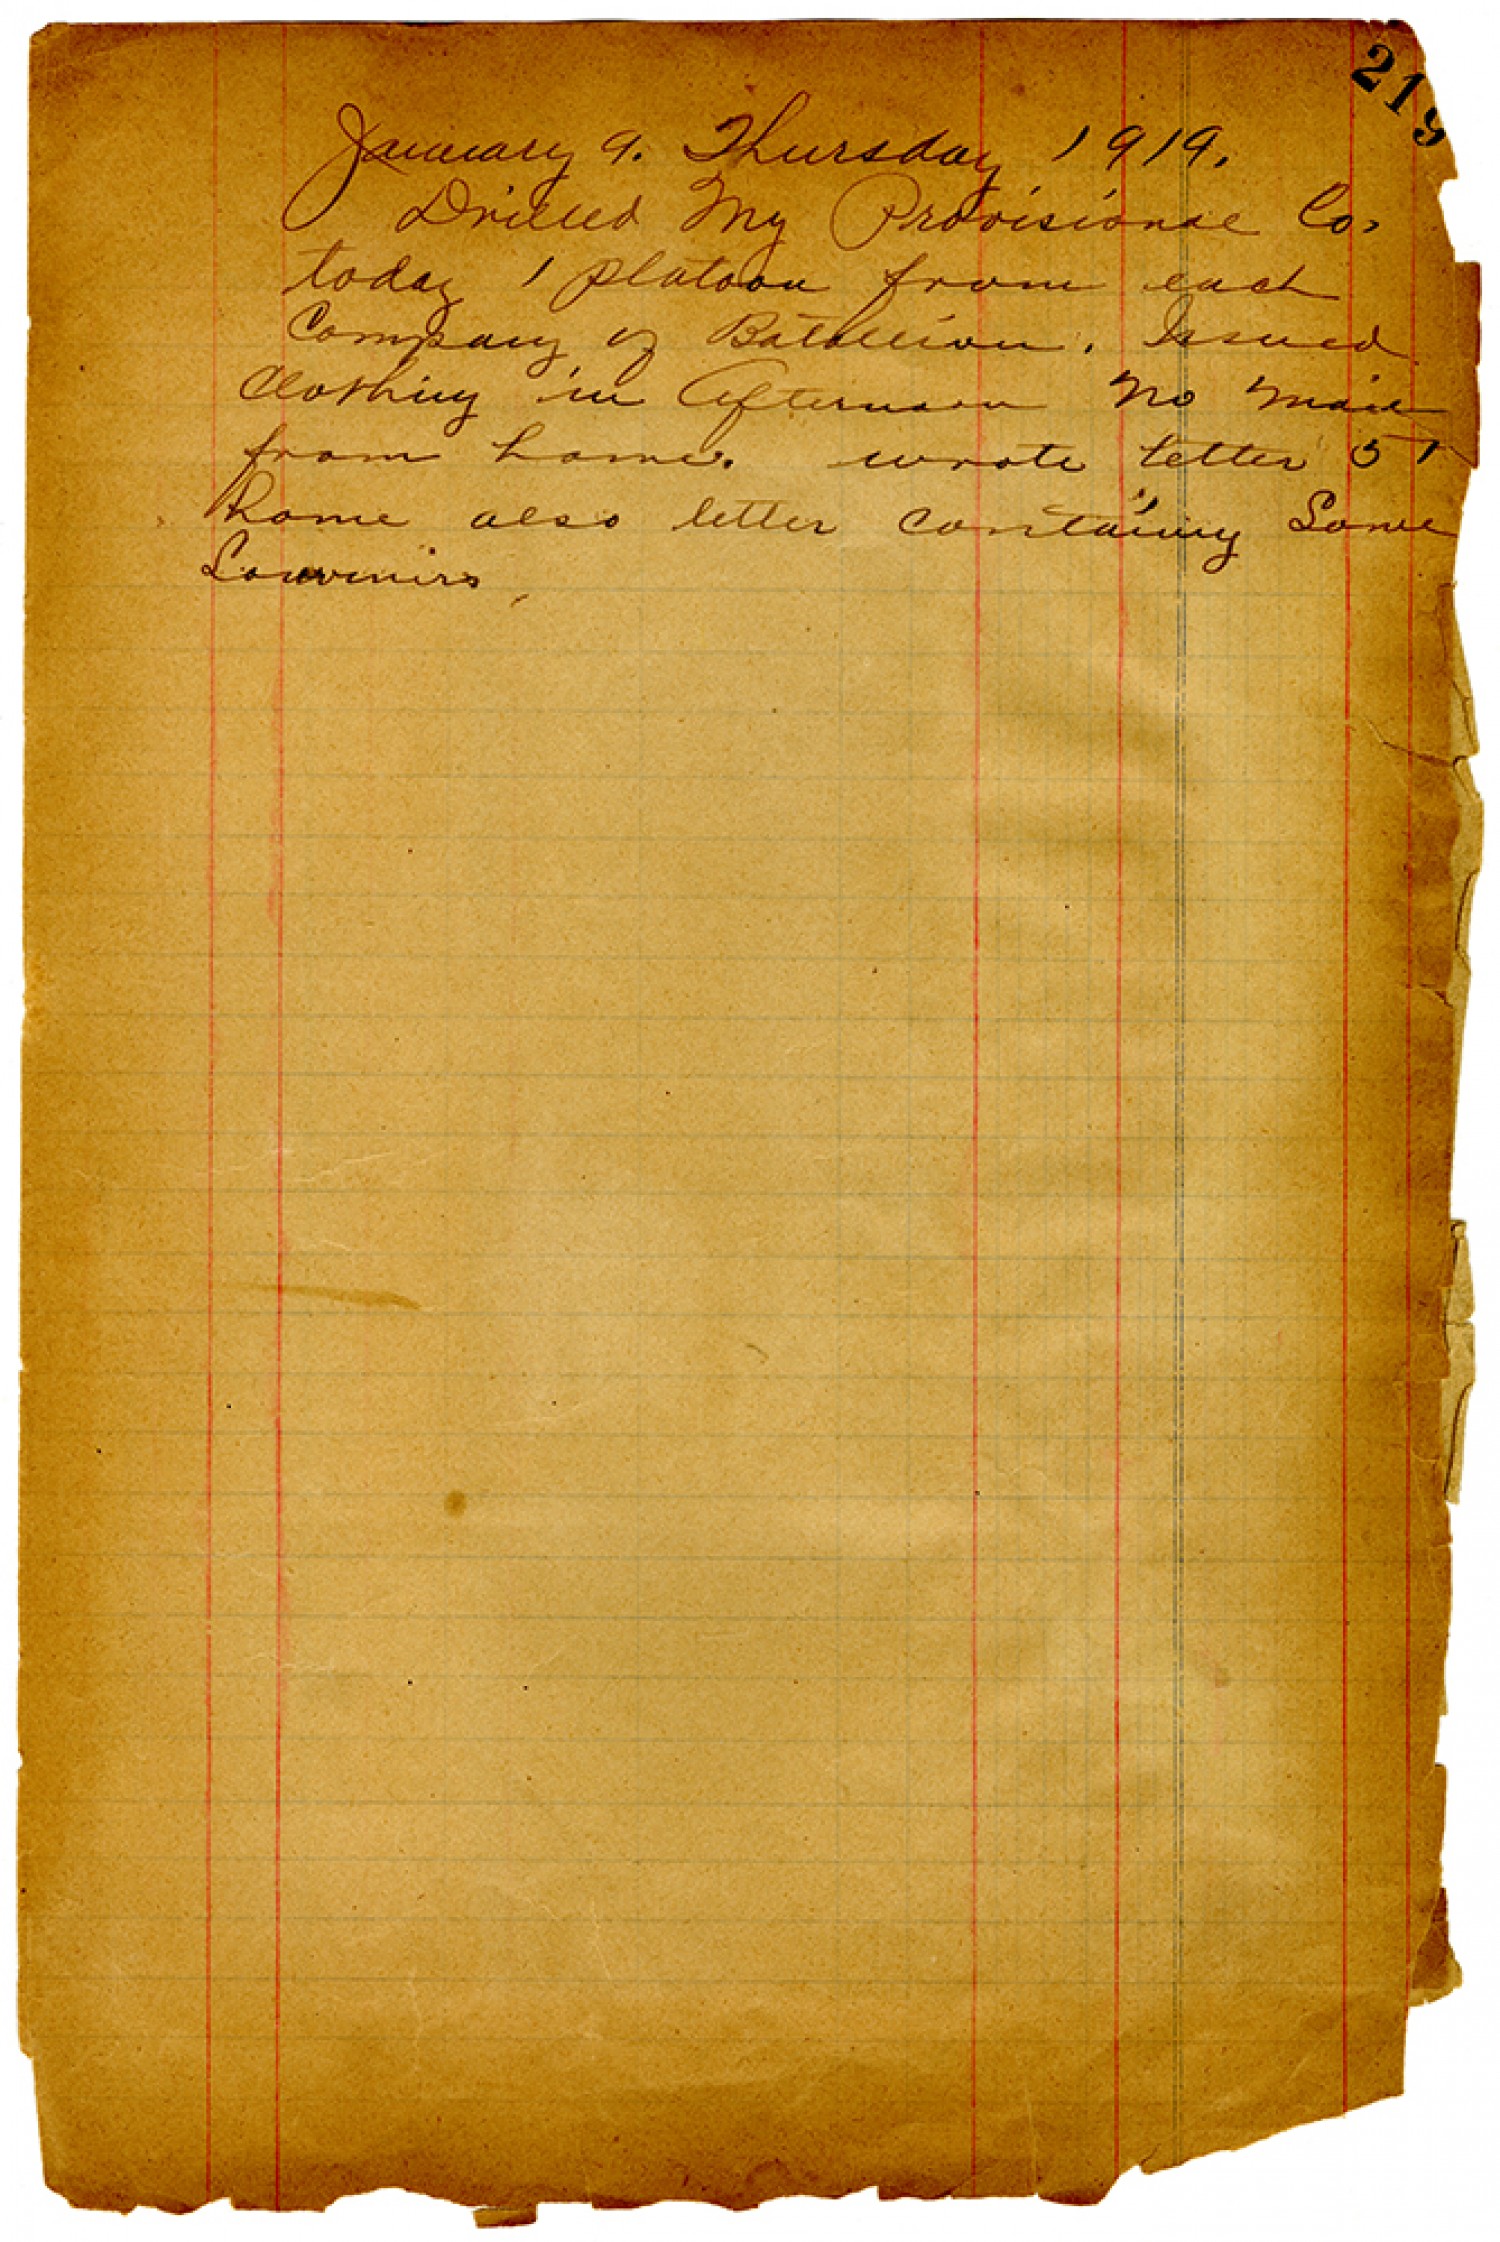 219
January 9. Thursday 1919.
Drilled My Provisional Co.
today 1 platoon from each
Company of Batallion. Issued
Clothing in Afternoon No Mail
from home. wrote letter 51
home also letter containing Some
Souvenirs